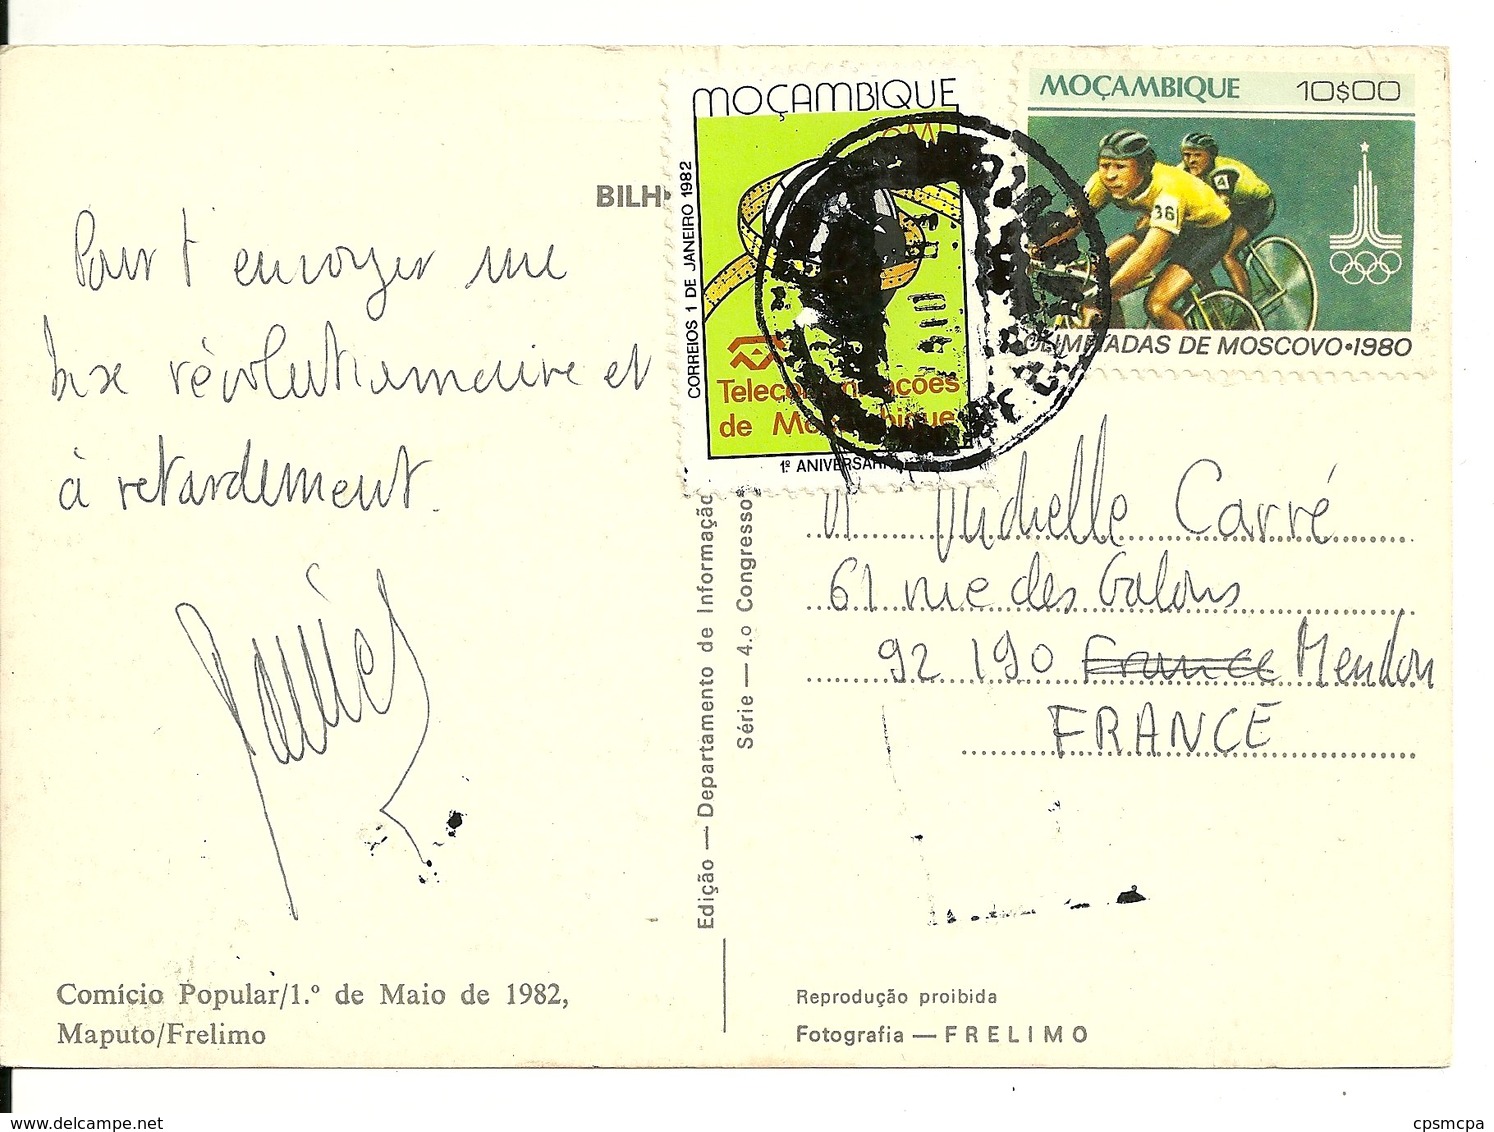 BILH
MOÇAMBIQUE
CORREIOS 1 DE JANEIRO 1982
Telecomunicações
de Moçambique
1º ANIVERSÁRIO
MOÇAMBIQUE 10$00
36
4
OLIMPIADAS DE MOSCOVO•1980
Pour t'envoyer une
bise révolutionnaire et
à retardement.
Edição — Departamento de Informação
Série — 4.o Congresso
M Michelle Carré
61 rue des Galons
92 190 France Meudon
FRANCE
Comício Popular/1.º de Maio de 1982,
Maputo/Frelimo
Reprodução proibida
Fotografia — FRELIMO
www.delcampe.net
cpsmcpa